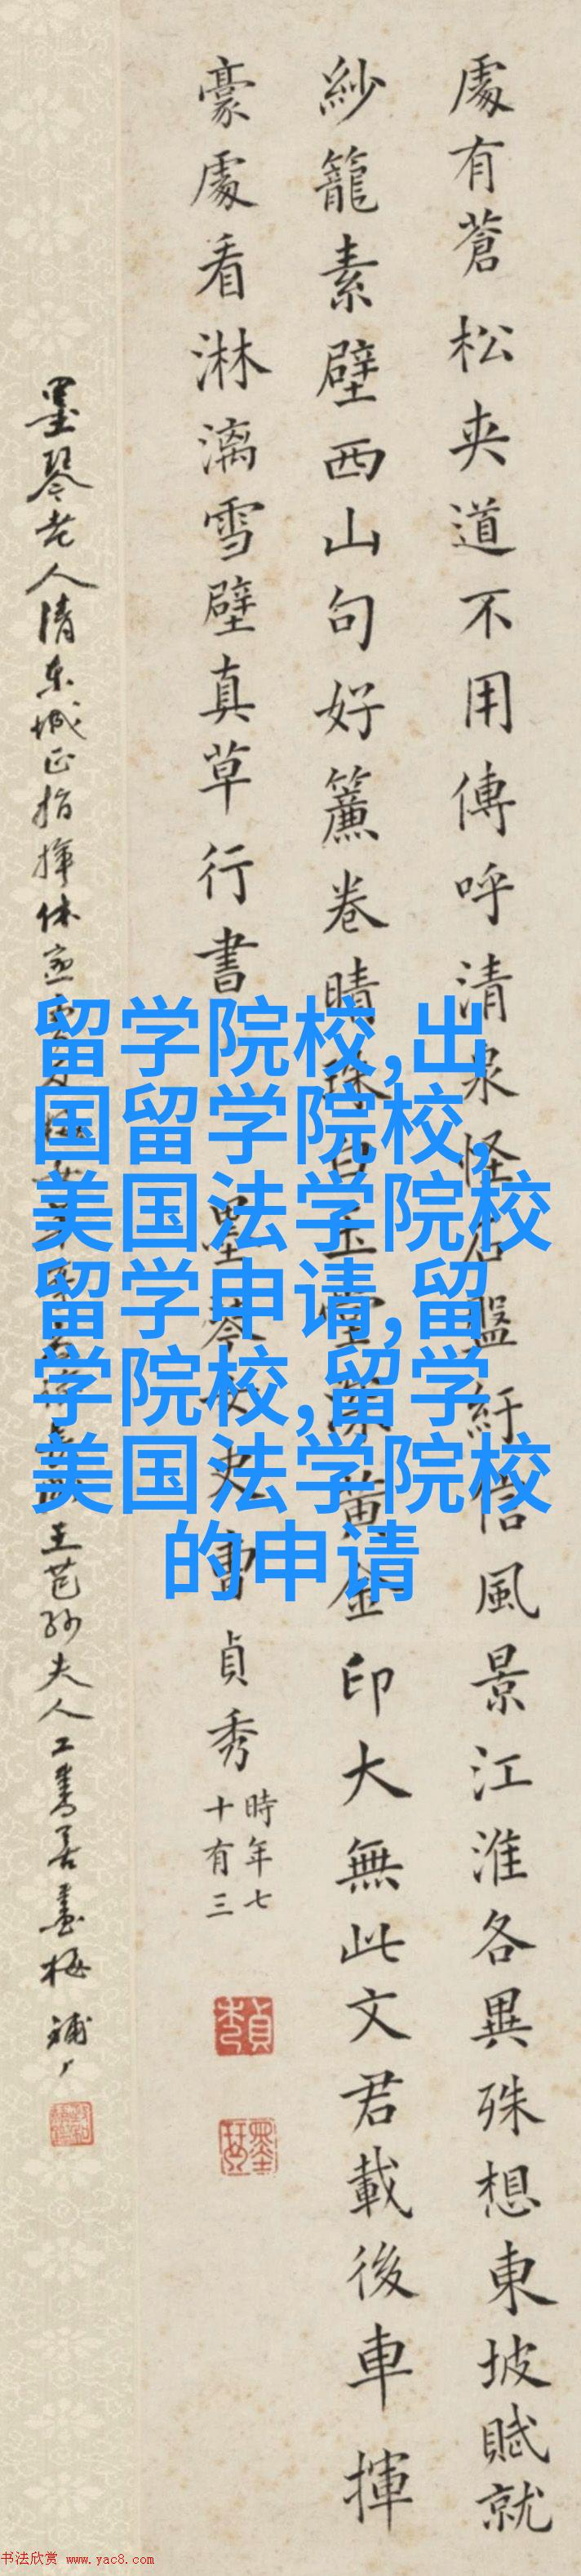 處有蒼松夾道不用傳呼清泉怪石盤紆信風景江淮各異殊想東坡賦就
紗籠素壁西山句好簾卷晴珠白玉堂深黃金印大無此文君載後車揮
豪處看淋漓雪壁真草行書
墨琴女史曹貞秀
時年七
十有三
貞秀
墨琴
墨琴老人清東城正指揮休
王芑孫夫人工書善畫梅
留学院校,出
国留学院校,
美国法学院校
留学申请,留
学院校,留学
美国法学院校
的申请
书法欣赏 www.yac8.com